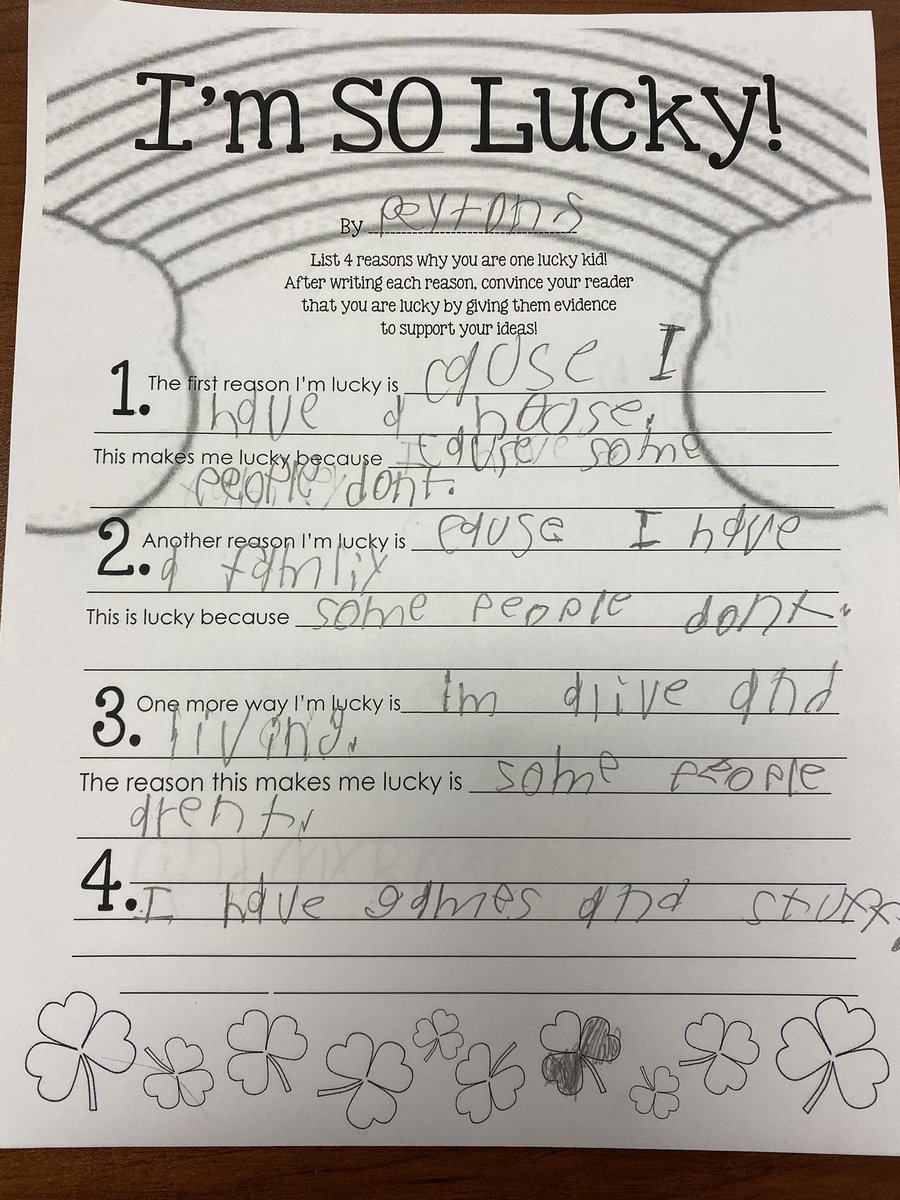 I'm SO Lucky!
By Peyton S
List 4 reasons why you are one lucky kid!
After writing each reason, convince your reader
that you are lucky by giving them evidence
to support your ideas!
1. The first reason I'm lucky is cause I
have a house.
This makes me lucky because cause some
people dont.
2. Another reason I'm lucky is cause I have
a family
This is lucky because some people dont.
3. One more way I'm lucky is Im alive and
living.
The reason this makes me lucky is some people
arent.
4. I have games and stuff.